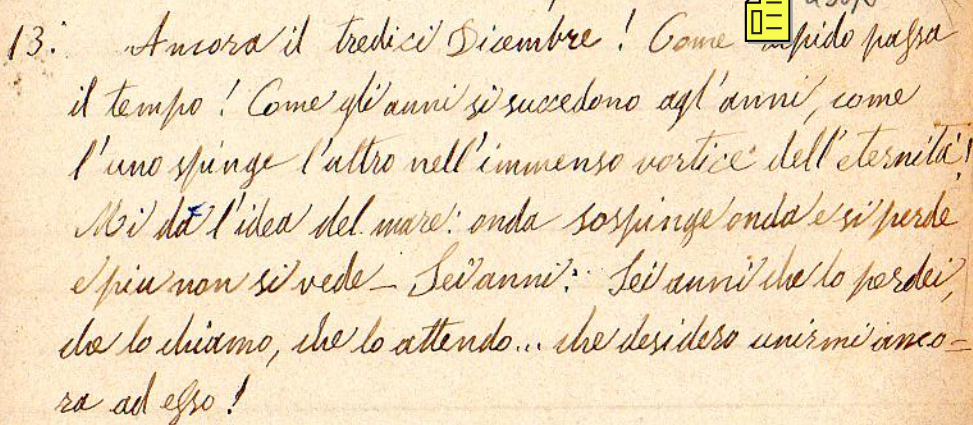 13. Ancora il tredici Dicembre! Come rapido passa
il tempo! Come gli anni si succedono agl'anni, come
l'uno spinge l'altro nell'immenso vortice dell'eternità!
Mi dà l'idea del mare: onda sospinge onda e si perde
e più non si vede – Sei anni: Sei anni che lo perdei,
che lo chiamo, che lo attendo... che desidero unirmi anco-
ra ad esso!